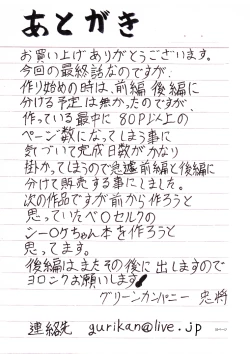 あとがき
お買い上げありがとうございます。
今回の最終話なのですが、
作り始めの時は、前編 後編に
分ける予定は無かったのですが、
作っている最中に 80P以上の
ページ数になってしまう事に
気づいて完成日数がかなり
掛かってしまうので急遽前編と後編に
分けて販売する事にしました。
次の作品ですが前から作ろうと
思っていたベ○セルクの
シー○ケちゃん本を作ろうと
思ってます。
後編は、またその後に出しますので
ヨロシクお願いします
グリーンカンパニー 忠将
連絡先 gurikan@live.jp